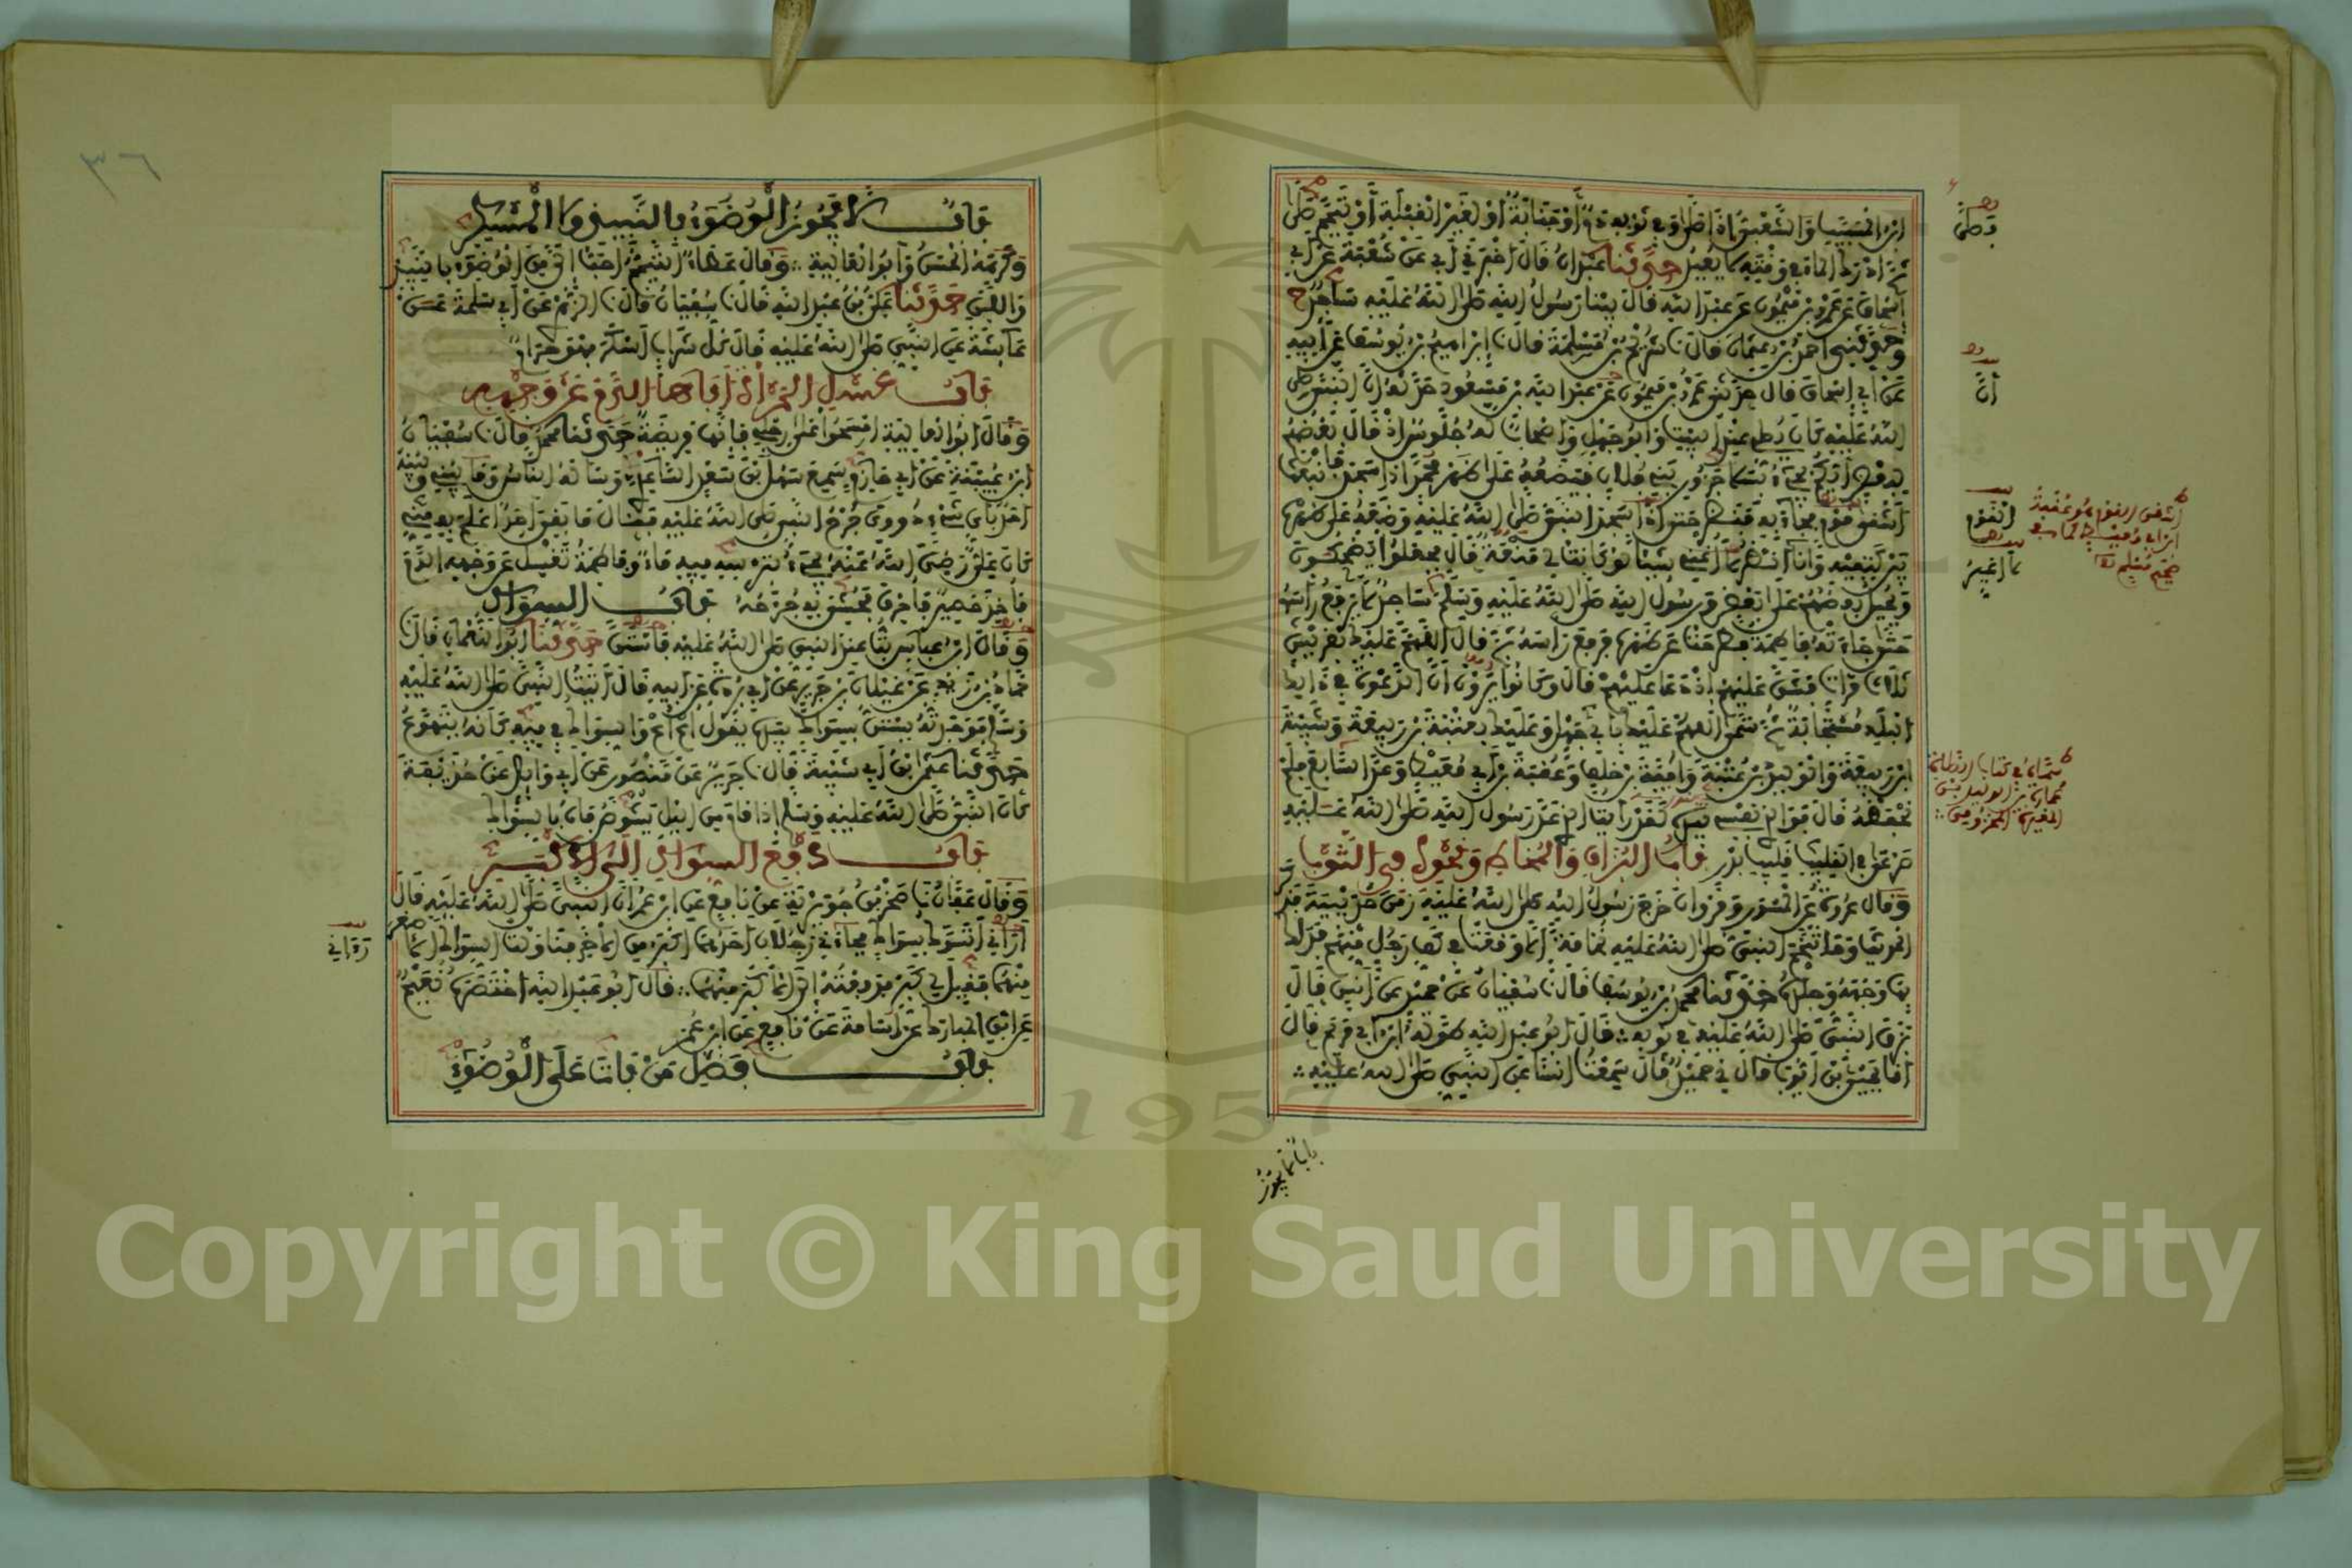 ابن المسيب والشعبي اذا صلى وفي ثوبه دم أو جنابة أو لغير القبلة أو تيمم صلى
ثم ادرك الماء في وقته لا يعيد حدثنا عبدان قال اخبرني أبي عن شعبة عن أبي
إسحاق عن عمرو بن ميمون عن عبد الله قال بينا رسول الله صلى الله عليه ساجد ح
وحدثني احمد بن عثمان قال نا شريح بن مسلمة قال نا إبراهيم بن يوسف عن أبيه
عن أبي إسحاق قال حدثني عمرو بن ميمون عن عبد الله بن مسعود حدثه ان النبي صلى
الله عليه كان يصلي عند البيت وأبو جهل وأصحاب له جلوس إذ قال بعضهم
أشقى القوم فجاء به فنظر حتى إذا سجد النبي صلى الله عليه وضعه على ظهره
بين كتفيه وأنا أنظر لا أغني شيئا لو كانت لي منعة قال فجعلوا يضحكون
ويحيل بعضهم على بعض ورسول الله صلى الله عليه وسلم ساجد لا يرفع رأسه
حتى جاءته فاطمة فطرحت عن ظهره فرفع رأسه ثم قال اللهم عليك بقريش
ثلاث مرات فشق عليهم إذ دعا عليهم قال وكانوا يرون أن الدعوة في ذلك
البلد مستجابة ثم سمى اللهم عليك بأبي جهل وعليك بعتبة بن ربيعة وشيبة
ابن ربيعة والوليد بن عتبة وأمية بن خلف وعقبة بن أبي معيط وعد السابع فلم
نحفظه قال فوالذي نفسي بيده لقد رأيت الذي عد رسول الله صلى الله عليه
صرعى في القليب قليب بدر باب البزاق والمخاط ونحوه في الثوب
وقال عروة عن المسور ومروان خرج رسول الله صلى الله عليه زمن حديبية فذكر
الحديث وما تنخم النبي صلى الله عليه نخامة إلا وقعت في كف رجل منهم فدلك
بها وجهه وجلده حدثنا محمد بن يوسف قال نا سفيان عن حميد عن أنس قال
بزق النبي صلى الله عليه في ثوبه قال أبو عبد الله طوله ابن أبي مريم قال
انا يحيى بن أيوب قال ني حميد قال سمعت انسا عن النبي صلى الله عليه
وصلى
أن
القوم
لا أغير
باب لا يجوز
باب لا يجوز الوضوء بالنبيذ ولا المسكر
وكرهه الحسن وأبو العالية وقال عطاء التيمم أحب إلي من الوضوء بالنبيذ
واللبن حدثنا علي بن عبد الله قال نا سفيان قال نا الزهري عن أبي سلمة عن
عائشة عن النبي صلى الله عليه قال كل شراب أسكر فهو حرام
باب غسل المرأة أباها الدم عن وجهه
وقال أبو العالية امسحوا على رجلي فإنها مريضة حدثنا محمد قال نا سفيان
ابن عيينة عن أبي حازم سمع سهل بن سعد الساعدي وسأله الناس وما بيني وبينه
أحد بأي شيء دووي جرح النبي صلى الله عليه فقال ما بقي أحد أعلم به مني
كان علي رضي الله عنه يجيء بترسه فيه ماء وفاطمة تغسل عن وجهه الدم
فأخذ حصير فأحرق فحشي به جرحه باب السواك
وقال ابن عباس بت عند النبي صلى الله عليه فاستن حدثنا أبو النعمان قال نا
حماد بن زيد عن غيلان بن جرير عن أبي بردة عن أبيه قال أتيت النبي صلى الله عليه
وسلم فوجدته يستن بسواك بيده يقول اع اع والسواك في فيه كأنه يتهوع
حدثنا عثمان بن أبي شيبة قال نا جرير عن منصور عن أبي وائل عن حذيفة
كان النبي صلى الله عليه وسلم إذا قام من الليل يشوص فاه بالسواك
باب دفع السواك إلى الأكبر
وقال عفان نا صخر بن جويرية عن نافع عن ابن عمر ان النبي صلى الله عليه قال
أراني أتسوك بسواك فجاءني رجلان احدهما اكبر من الآخر فناولت السواك الأصغر
منهما فقيل لي كبر فدفعته إلى الأكبر منهما قال أبو عبد الله اختصره نعيم
عن ابن المبارك عن أسامة عن نافع عن ابن عمر
باب فضل من بات على الوضوء
٣٦
Copyright © King Saud University
1957